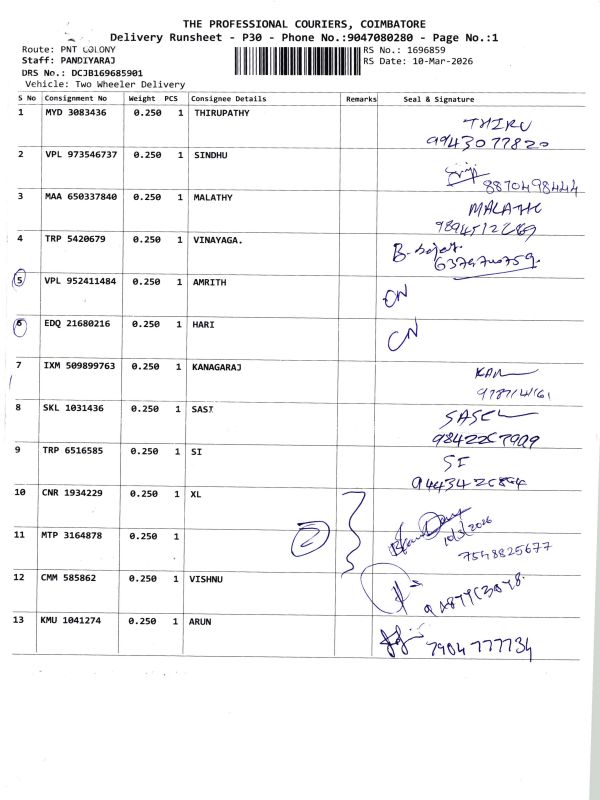 THE PROFESSIONAL COURIERS, COIMBATORE
Delivery Runsheet - P30 - Phone No.:9047080280 - Page No.:1
Route: PNT COLONY
RS No.: 1696859
Staff: PANDIYARAJ
RS Date: 10-Mar-2026
DRS No.: DCJB169685901
Vehicle: Two Wheeler Delivery
S No Consignment No Weight PCS Consignee Details Remarks Seal & Signature
1 MYD 3083436 0.250 1 THIRUPATHY THIRU
9943077820
2 VPL 973546737 0.250 1 SINDHU
8870498444
3 MAA 650337840 0.250 1 MALATHY
4 TRP 5420679 0.250 1 VINAYAGA.
5 VPL 952411484 0.250 1 AMRITH
6 EDQ 21680216 0.250 1 HARI CN
7 IXM 509899763 0.250 1 KANAGARAJ
8 SKL 1031436 0.250 1 SASI
9 TRP 6516585 0.250 1 SI SI
10 CNR 1934229 0.250 1 XL
10/3/2026
11 MTP 3164878 0.250 1 2
7548825677
12 CMM 585862 0.250 1 VISHNU
13 KMU 1041274 0.250 1 ARUN 7904777734